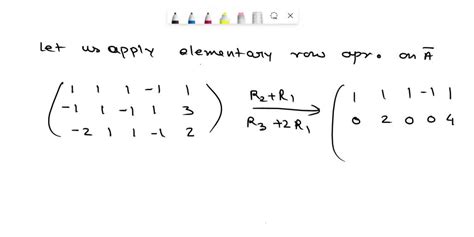 Let us apply elementary row opr. on A̅
( 1 1 1 -1 1
-1 1 -1 1 3
-2 1 1 -1 2 )
R₂+R₁
R₃+2R₁
( 1 1 1 -1 1
0 2 0 0 4